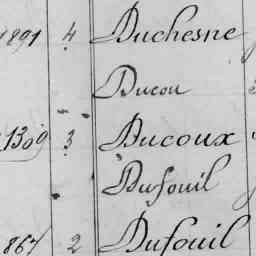 1891 4 Duchesne
Ducou
1309 3 Ducoux
Dufouil
867 2 Dufouil